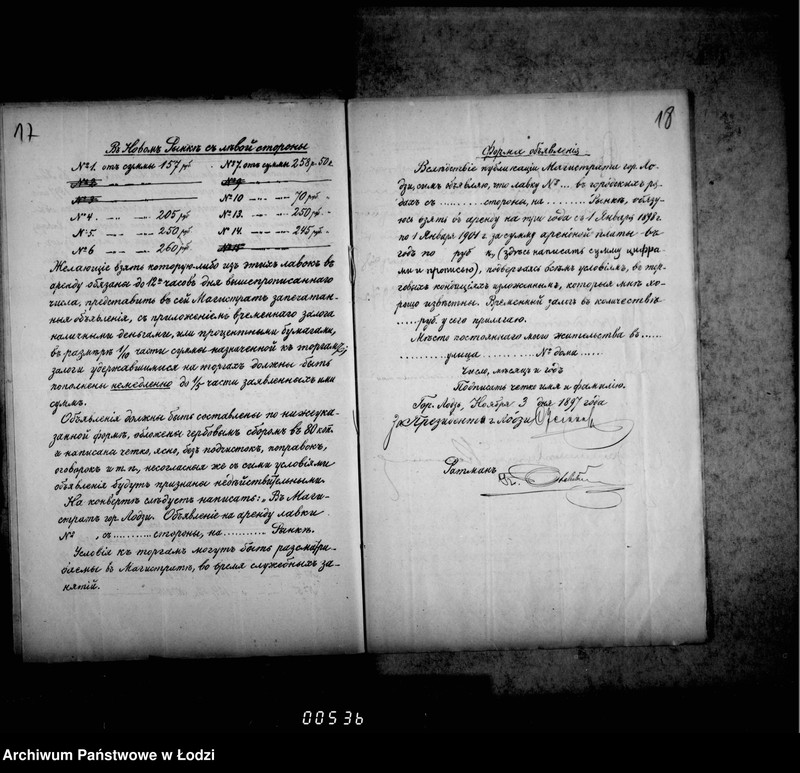 17
Въ Новомъ Рынкѣ съ лѣвой стороны
№ 1. отъ суммы 157 рб. № 7. отъ суммы 258 р. 50 к.
№ 10 " — " — 70 рб. "
№ 4 — " — " — 205 рб. № 13. " — " — 250 рб. "
№ 5. — " — " — 250 рб. № 14. " — " — 245 рб. "
№ 6 — " — " — 260 рб.
Желающіе взять которую-либо изъ этихъ лавокъ въ
аренду обязаны до 12ти часовъ дня вышепрописаннаго
числа, представить въ сей Магистратъ запечатан-
ныя объявленія, съ приложеніемъ временнаго залога
наличными деньгами, или процентными бумагами,
въ размѣрѣ 1/10 части суммы назначенной къ торгамъ,
залоги удержавшихся на торгахъ должны быть
пополнены немедленно до 1/5 части заявленныхъ ими
суммъ.
Объявленія должны быть составлены по нижеука-
занной формѣ, обложены гербовымъ сборомъ въ 80 коп.
и написана четко, ясно, безъ подчистокъ, поправокъ,
оговорокъ и т. п., несогласныя же съ сими условіями
объявленія будутъ признаны недѣйствительными.
На конвертѣ слѣдуетъ написать: „Въ Маги-
стратъ гор. Лодзи. Объявленіе на аренду лавки
№ , съ .......... стороны, на .......... Рынкѣ.
Условія къ торгамъ могутъ быть разсматри-
ваемы въ Магистратѣ, во время служебныхъ за-
нятій.
18
Форма объявленія
Вслѣдствіе публикаціи Магистрата гор. Ло-
дзи, симъ объявляю, что лавку № ... въ городскихъ ря-
дахъ съ .......... стороны, на .......... Рынкѣ, обязу-
юсь взять въ аренду на три года съ 1 Января 1898 г.
по 1 Января 1901 г. за сумму арендной платы въ
годъ по руб к, (здѣсь написать сумму цифра-
ми и прописью), подвергаясь всѣмъ условіямъ, въ тор-
говыхъ кондиціяхъ изложеннымъ, которыя мнѣ хо-
рошо извѣстны. Временный залогъ въ количествѣ
..... руб. у сего прилагаю.
Мѣсто постояннаго моего жительства въ .....
.......... улица .......... № дома .....
Число, мѣсяцъ и годъ
Подписать четко имя и фамилію.
Гор. Лодзь, Ноября 3 дня 1897 года
Президентъ г. Лодзи
Ратманъ
0053b
Archiwum Państwowe w Łodzi